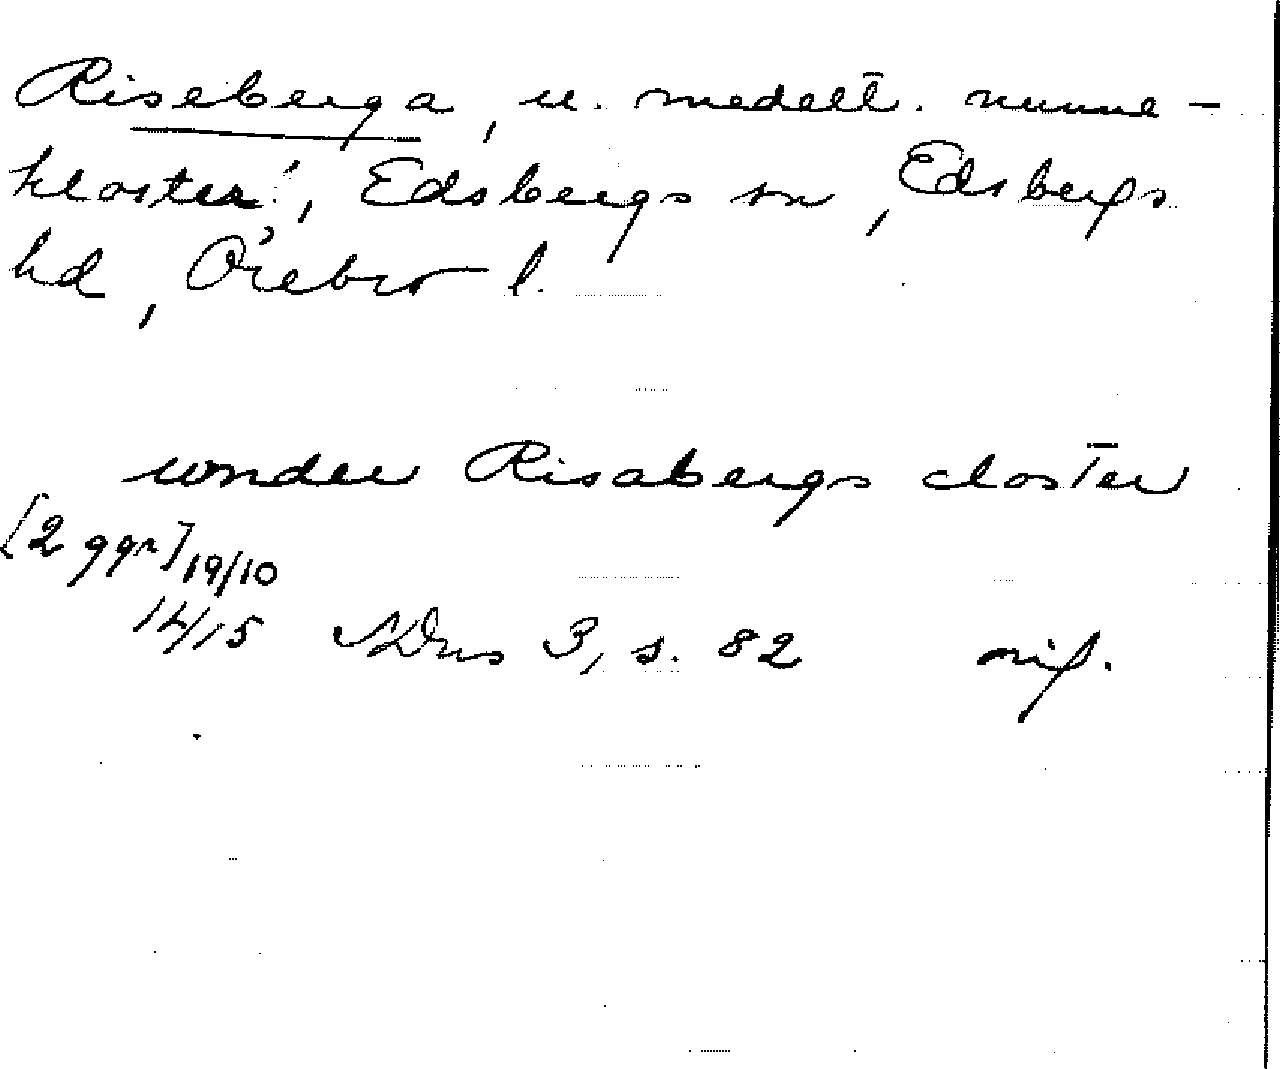 Riseberga, u. medelt. nunne-
kloster!, Edsbergs sn, Edsbergs
hd, Örebro l.
wnder Risabergs closter
[2 ggr] 19/10
14/15 SDns 3, s. 82